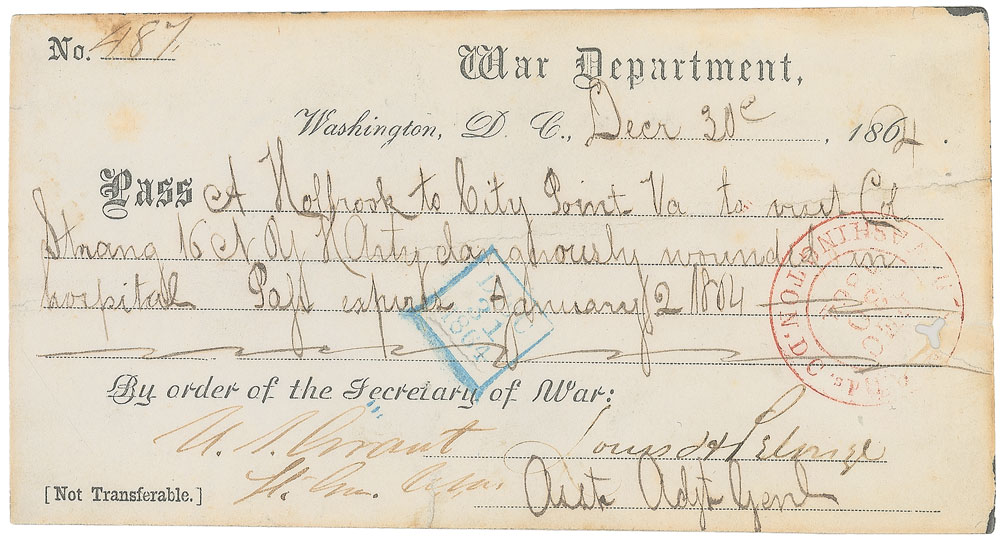 No. 487.
War Department,
Washington, D. C., Decr 30 , 1864.
Pass A Hoffrook to City Point Va to visit Col
Strang 16 N Y H Arty danghously wounded in
hospital Pass expires January 12 1864
By order of the Secretary of War:
U. S. Grant
Lt. Gen.
Louis H Pelouze
Asst Adjt Genl
[Not Transferable.]
31
1864
WASHINGTON. D. C.